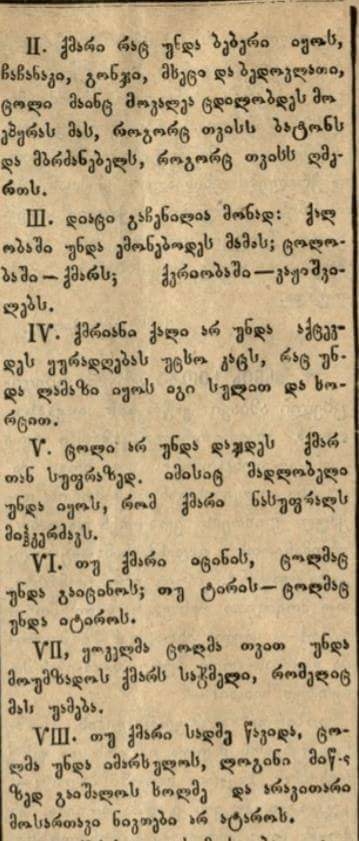 II. ქმარი რაც უნდა ბებერი იყოს,
ჩაჩანაკი, გონჯი, მხეცი და ბედოვლათი,
ცოლი მაინც მოვალეა ცდილობდეს მო
ეპყრას მას, როგორც თვისს ბატონს
და მბრძანებელს, როგორც თვისს ღმე-
რთს.
III. დიაცი გაჩენილია მონად: ქალ
ობაში უნდა ემონებოდეს მამას; ცოლო-
ბაში — ქმარს; ქვრიობაში — ვაჟიშვი-
ლებს.
IV. ქმრიანი ქალი არ უნდა აქცევ-
დეს ყურადღებას უცხო კაცს, რაც უნ-
და ლამაზი იყოს იგი სულით და ხო-
რცით.
V. ცოლი არ უნდა დაჯდეს ქმარ
თან სუფრაზედ. იმისიც მადლობელი
უნდა იყოს, რომ ქმარი ნასუფრალს
მიჰგერმაგს.
VI. თუ ქმარი იცინის, ცოლმაც
უნდა გაიცინოს; თუ ტირის — ცოლმაც
უნდა იტიროს.
VII, ყოველმა ცოლმა თვით უნდა
მოუმზადოს ქმარს საჭმელი, რომელიც
მას უამება.
VIII. თუ ქმარი სადმე წავიდა, ცო-
ლმა უნდა იმარხულოს, ლოგინი მიწა
ზედ გაიშალოს ხოლმე და არავითარი
მოსართავი ნივთები არ ატაროს.